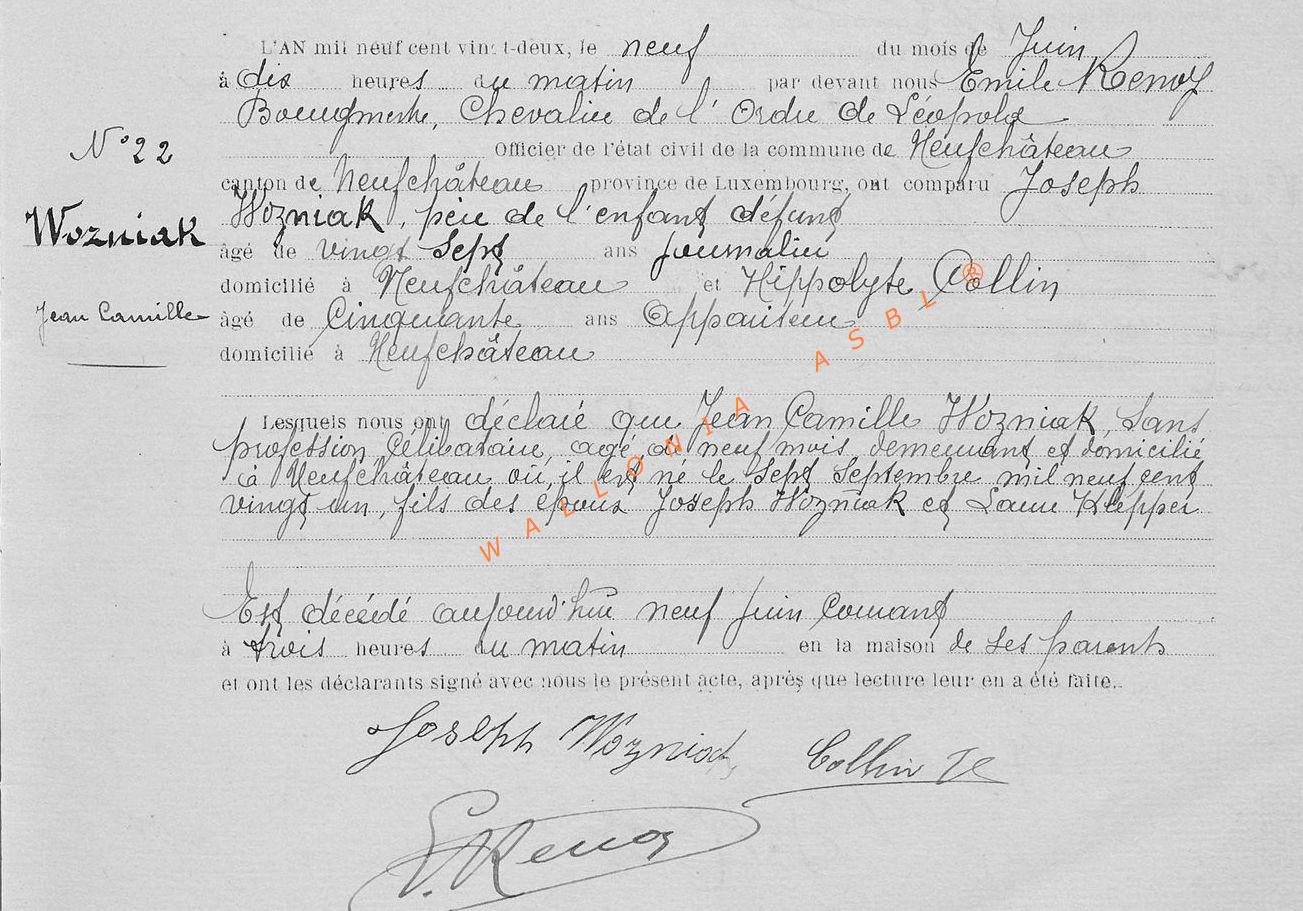 L'AN mil neuf cent vingt-deux, le neuf du mois de Juin
à dix heures du matin par devant nous Emile Renoy
Bourgmestre, Chevalier de l'Ordre de Léopold
Officier de l'état civil de la commune de Neufchâteau
N° 22
canton de Neufchâteau province de Luxembourg, ont comparu Joseph
Wozniak
Wozniak, père de l'enfant défunt
âgé de vingt sept ans journalier
domicilié à Neufchâteau et Hippolyte Collin
Jean Camille
âgé de Cinquante ans Appariteur
domicilié à Neufchâteau
Lesquels nous ont déclaré que Jean Camille Wozniak, sans
profession, célibataire, agé de neuf mois, demeurant et domicilié
à Neufchâteau où il est né le sept Septembre mil neuf cent
vingt un, fils des époux Joseph Wozniak et Laure Klepper
WALLONIA ASBL ®
Est décédé aujourd'hui neuf Juin Courant
à trois heures du matin en la maison de ses parents
et ont les déclarants signé avec nous le présent acte, après que lecture leur en a été faite.
Joseph Wozniak, Collin H
E. Renoy